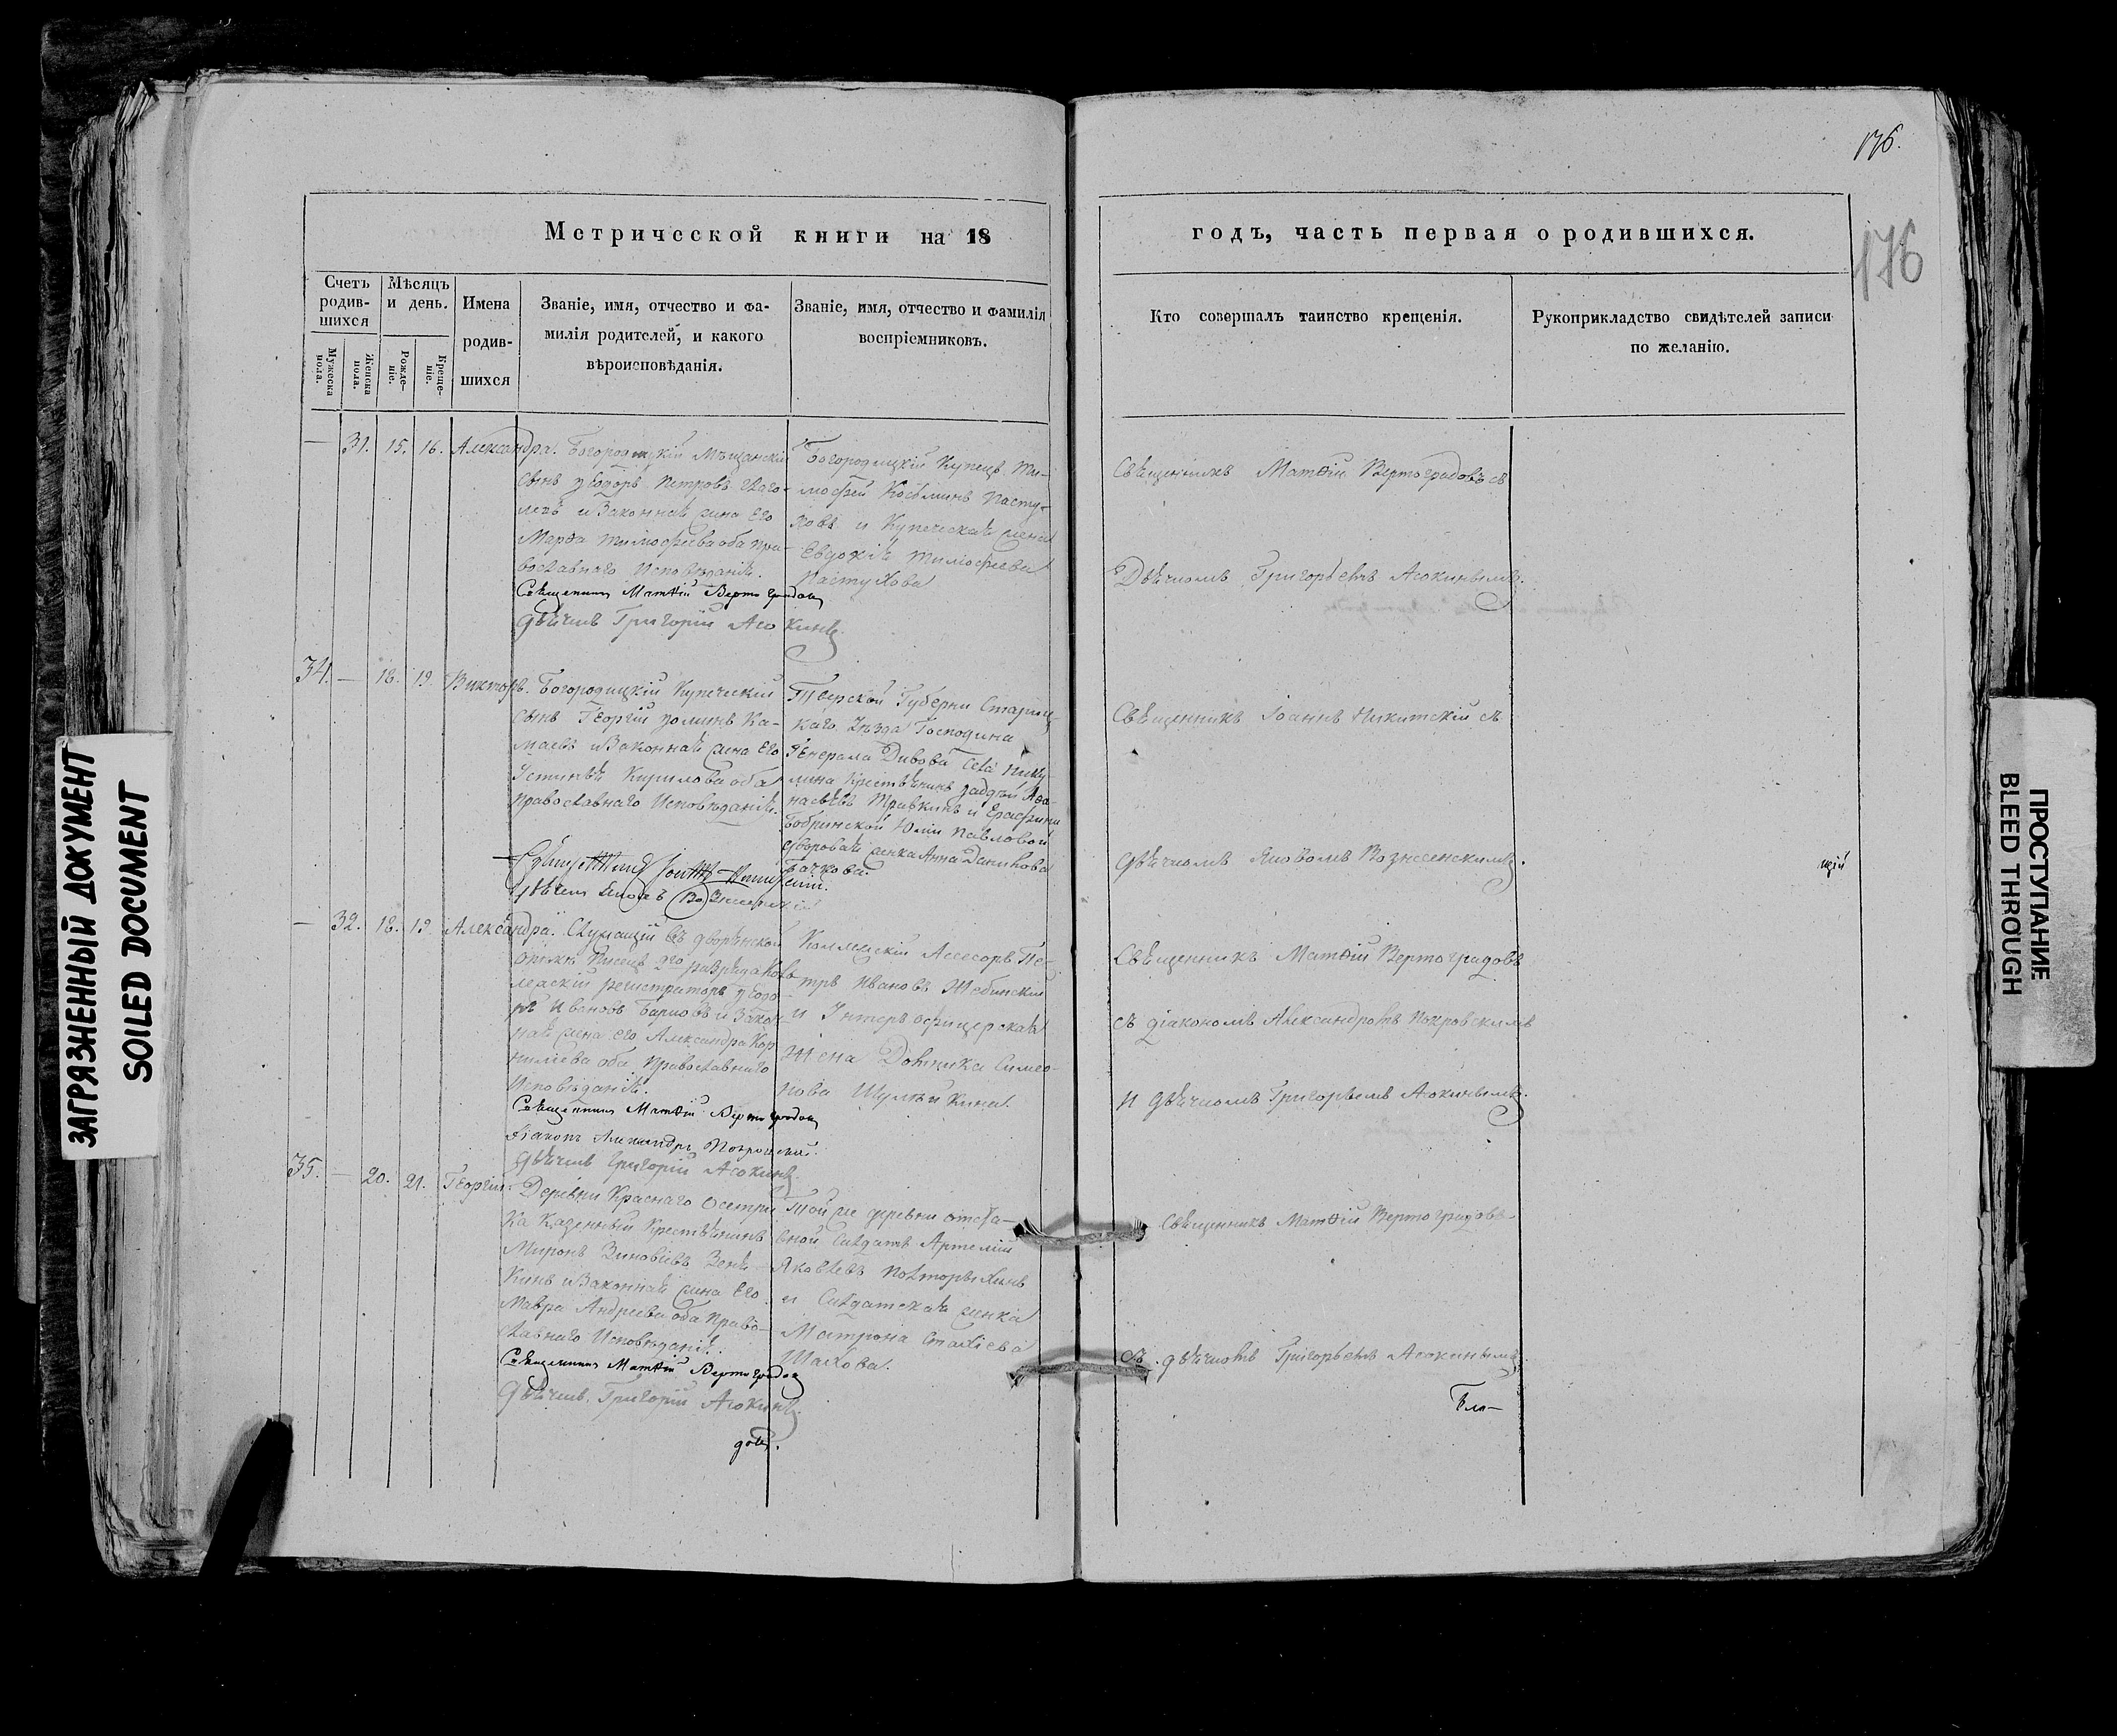 176.
176
Метрической книги на 18
годъ, часть первая о родившихся.
Счетъ родившихся
Мѣсяцъ и день.
Имена родившихся
Званіе, имя, отчество и фамилія родителей, и какого вѣроисповѣданія.
Званіе, имя, отчество и фамилія воспріемниковъ.
Кто совершалъ таинство крещенія.
Рукоприкладство свидѣтелей записи по желанію.
Мужеска пола.
Женска пола.
Рожденіе.
Крещеніе.
— 31. 15. 16. Александра.
Богородицкій Мѣщанскій
сынъ Ѳеодоръ Петровъ Глаго-
левъ и Законная жена Его
Марѳа Тимофѣева оба пра-
вославнаго Исповѣданія.
Священникъ Матѳій Вертоградовъ
Дьячикъ Григорій Асокинъ.
Богородицкій Купецъ Ти-
мофей Косьминъ Пасту-
ховъ и Купеческая жена
Евдокія Тимофеева
Пастухова
Священникъ Матѳій Вертоградовъ съ
Дьячкомъ Григорьемъ Асокинымъ.
34. — 18. 19. Викторъ.
Богородицкій Купеческій
сынъ Георгій Ѳоминъ Ка-
маевъ и Законная жена Его
Устинья Кирилова оба
Православнаго Исповѣданія.
Тверской Губерни Стариц-
каго Уѣзда Господина
Генерала Дивова Села Нику-
лина Крестьянинъ Фадѣй Аѳа-
насьевъ Травкинъ и Графини
Бобринской Юліи Павловой
дворовая женка Анна Данилова
Бачкова.
Священникъ Іоаннъ Никитскій съ
дьячкомъ Яковомъ Вознесенскимъ.
щій
— 32. 18. 19. Александра.
Служащій въ дворянской
опекѣ Писецъ 2го разряда Кол-
лежскій регистраторъ Ѳеодо-
ръ Ивановъ Барковъ и Закон-
ная жена Его Александра Кор-
ниліева оба Православнаго
Исповѣданія.
Священникъ Матѳій Вертоградовъ
Діаконъ Александръ Покровскій.
Дьячикъ Григорій Асокинъ.
Коллежскій Ассесоръ Пе-
тръ Ивановъ Жебинскій
и Унтеръ офицерская
жена Домника Симео-
нова Шулькина.
Священникъ Матѳій Вертоградовъ
съ діакономъ Александромъ Покровскимъ
и дьячкомъ Григорьемъ Асокинымъ.
35. — 20. 21. Георгій.
Деревни Краснаго Осетри-
ка Казенный Крестьянинъ
Миронъ Зиновіевъ Зеня-
кинъ и Законная жена Его
Мавра Андреева оба Право-
славнаго Исповѣданія.
Священникъ Матѳій Вертоградовъ
Дьячикъ Григорій Асокинъ.
Той же деревни отста-
вной Солдатъ Артемій
Яковлевъ Полторыхинъ
и Солдатская женка
Матрона Стахіева
Шахова.
Священникъ Матѳій Вертоградовъ
съ дьячкомъ Григорьемъ Асокинымъ.
Бла-
ЗАГРЯЗНЕННЫЙ ДОКУМЕНТ
SOILED DOCUMENT
ПРОСТУПАНИЕ
BLEED THROUGH